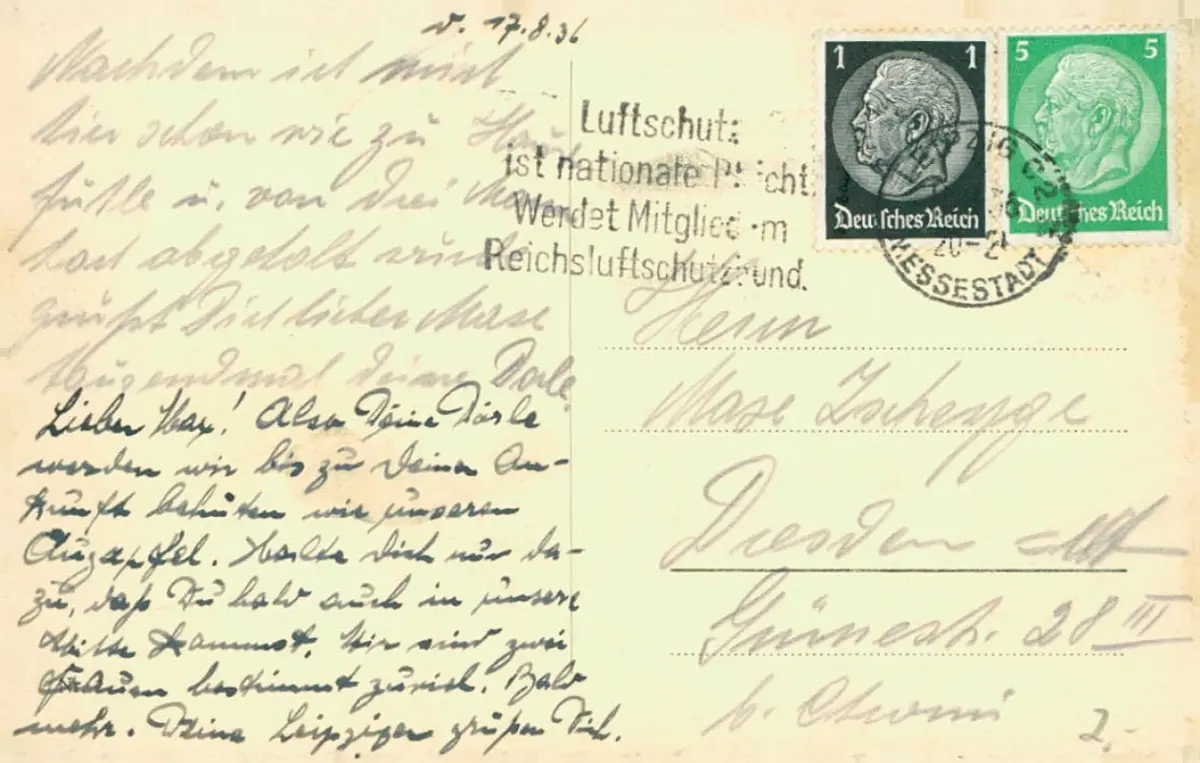 v. 17.8.36
Nachdem ich mich
hier schon wie zu Haus
fühle u. von drei
abgeholt
grüßt Dich lieber Maxe
tausendmal Deine Dorle.
Lieber Max! Also Deine Dorle
werden wir bis zu Deiner An-
kunft behüten wie unseren
Augapfel. Halte Dich nur da-
zu, daß Du bald auch in unsere
Mitte kommst. Wir sind zwei
Frauen bestimmt zuviel. Bald
mehr. Deine Leipziger grüßen Dich.
Luftschutz
ist nationale Pflicht.
Werdet Mitglied im
Reichsluftschutzbund.
1 1
Deutsches Reich
5 5
Deutsches Reich
LEIPZIG C2
20-21
MESSESTADT
Herrn
Maxe
Dresden
28 III
b.
2.-